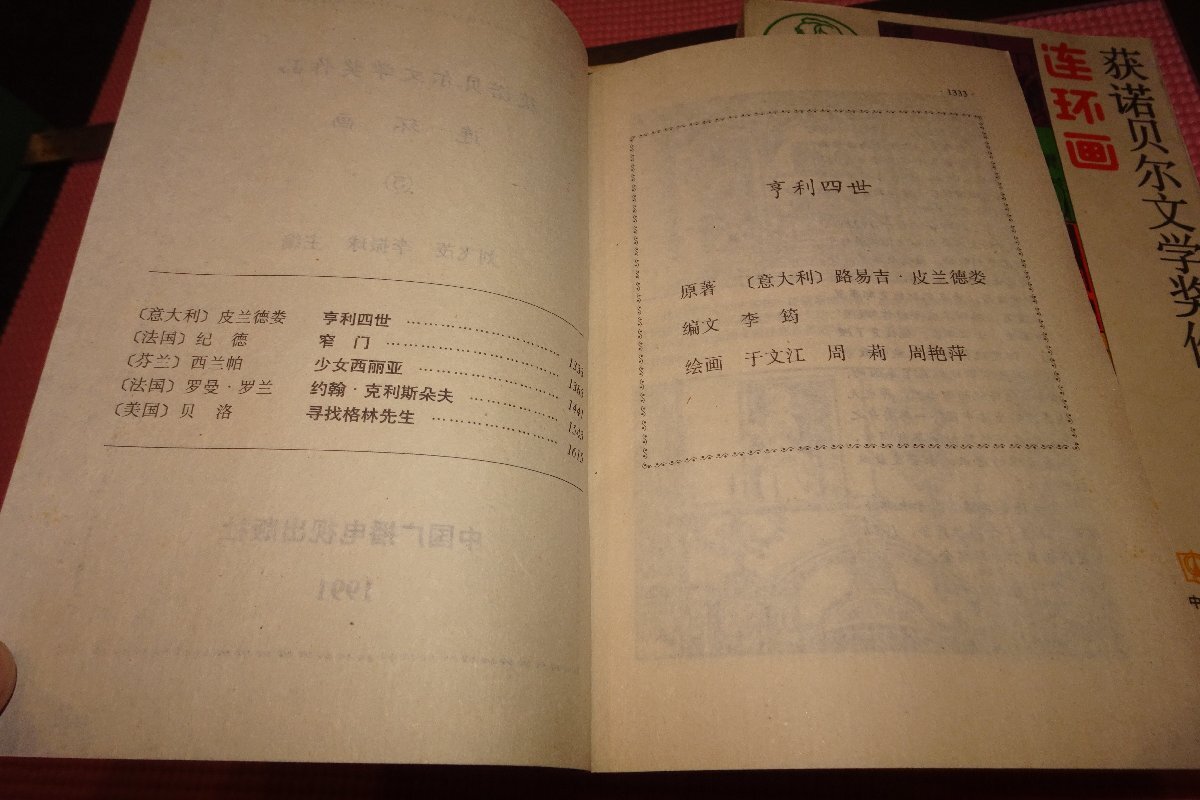 〔意大利〕皮兰德娄 亨利四世 ……………… 1333
〔法国〕纪 德 窄 门 ………………
〔芬兰〕西兰帕 少女西丽亚 ………………
〔法国〕罗曼·罗兰 约翰·克利斯朵夫 ………………
〔美国〕贝 洛 寻找格林先生 ……………… 1615
·1333·
亨利四世
原著 〔意大利〕路易吉·皮兰德娄
编文 李 筠
绘画 于文江 周 莉 周艳萍
获诺贝尔文学奖作
连环画
中国广播电视出版社
1991